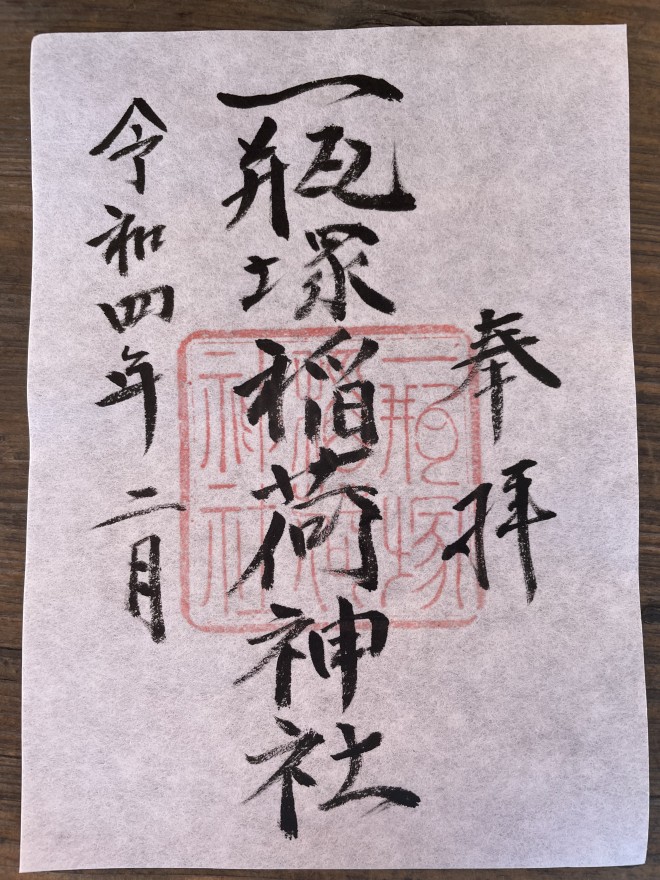 奉拝
一瓶塚稲荷神社
令和四年二月
一瓶塚
稲荷
神社